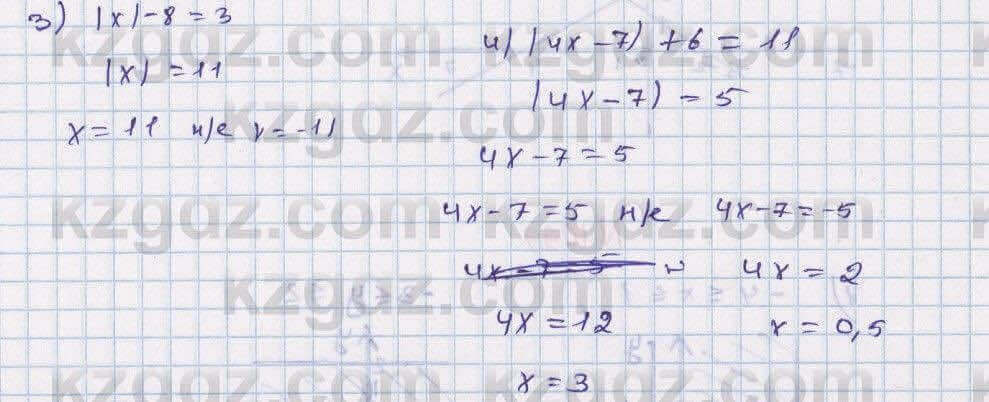 3) |x| - 8 = 3
|x| = 11
x = 11 н/е x = -11
4) |4x - 7| + 6 = 11
|4x - 7| = 5
4x - 7 = 5
4x - 7 = 5 н/е 4x - 7 = -5
4x = 2
4x = 12 x = 0,5
x = 3
kzgdz.com kzgdz.com
kzgdz.com
kzgdz.com kzgdz.com
kzgdz.com
kzgdz.com kzgdz.com